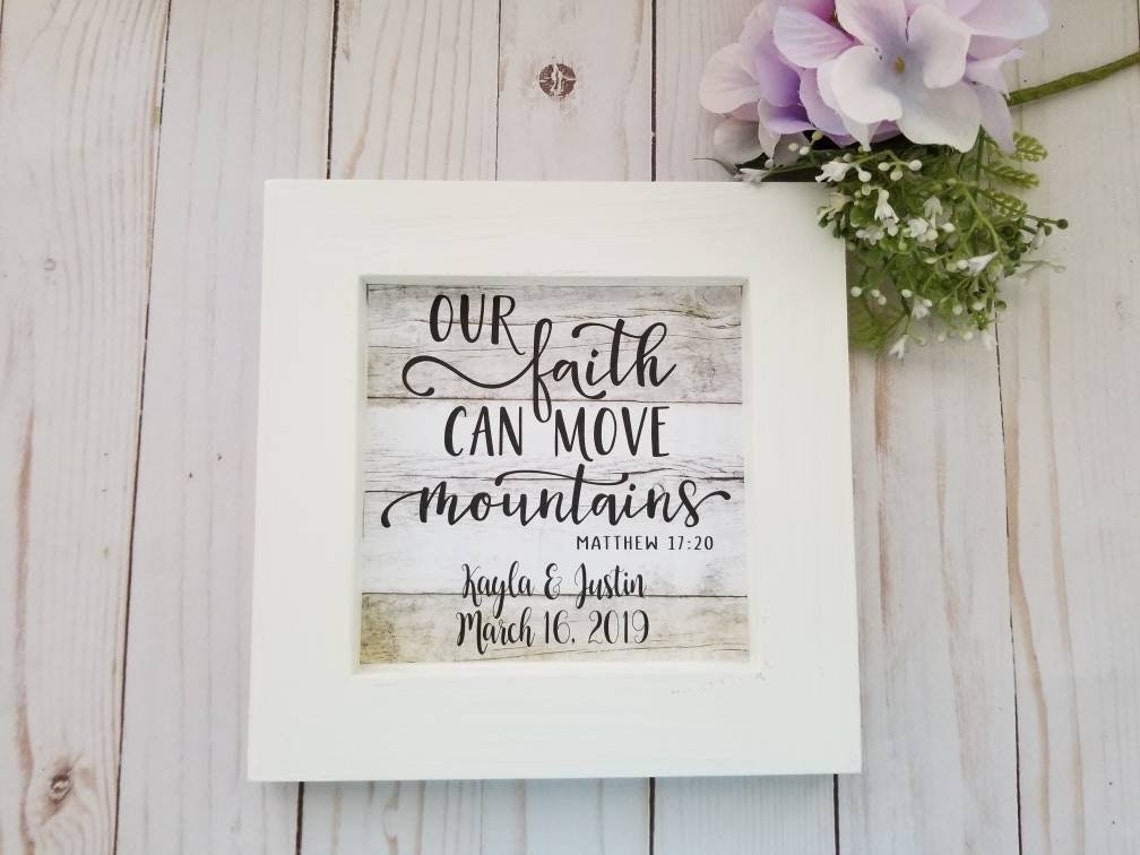 OUR
faith
CAN MOVE
mountains
MATTHEW 17:20
Kayla & Justin
March 16, 2019